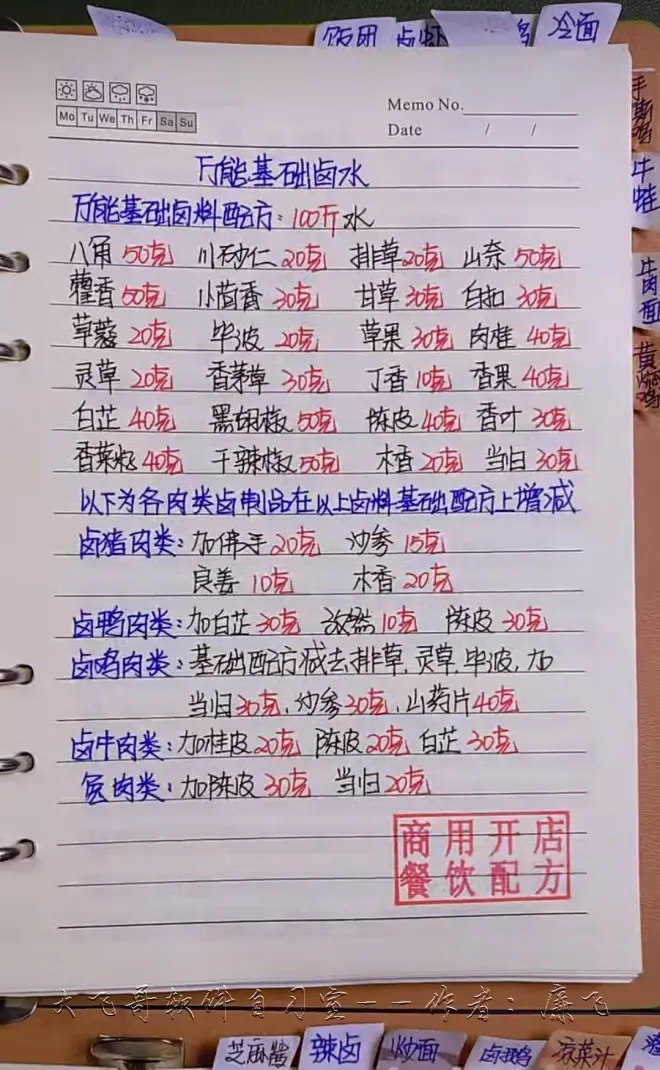 饭团
冷面
牛蛙
牛肉面
黄焖鸡
Memo No.
Mo Tu We Th Fr Sa Su
Date / /
万能基础卤水
万能基础卤料配方:100斤水
八角50克 川砂仁20克 排草20克 山奈50克
藿香50克 小茴香30克 甘草30克 白扣30克
草蔻20克 毕波20克 草果30克 肉桂40克
灵草20克 香茅草30克 丁香10克 香果40克
白芷40克 黑胡椒50克 陈皮40克 香叶30克
香菜籽40克 干辣椒50克 木香20克 当归30克
以下为各肉类卤制品在以上卤料基础配方上增减
卤猪肉类:加佛手20克 沙参15克
良姜10克 木香20克
卤鸭肉类:加白芷30克 10克 陈皮30克
卤鸡肉类:基础配方减去排草,灵草,毕波,加
当归30克,沙参30克,山药片40克
卤牛肉类:加桂皮20克 陈皮20克 白芷30克
兔肉类:加陈皮30克 当归20克
商用开店
餐饮配方
大飞哥软件自习室--作者:廉飞
芝麻酱
辣卤
炒面
卤鹅
凉菜汁